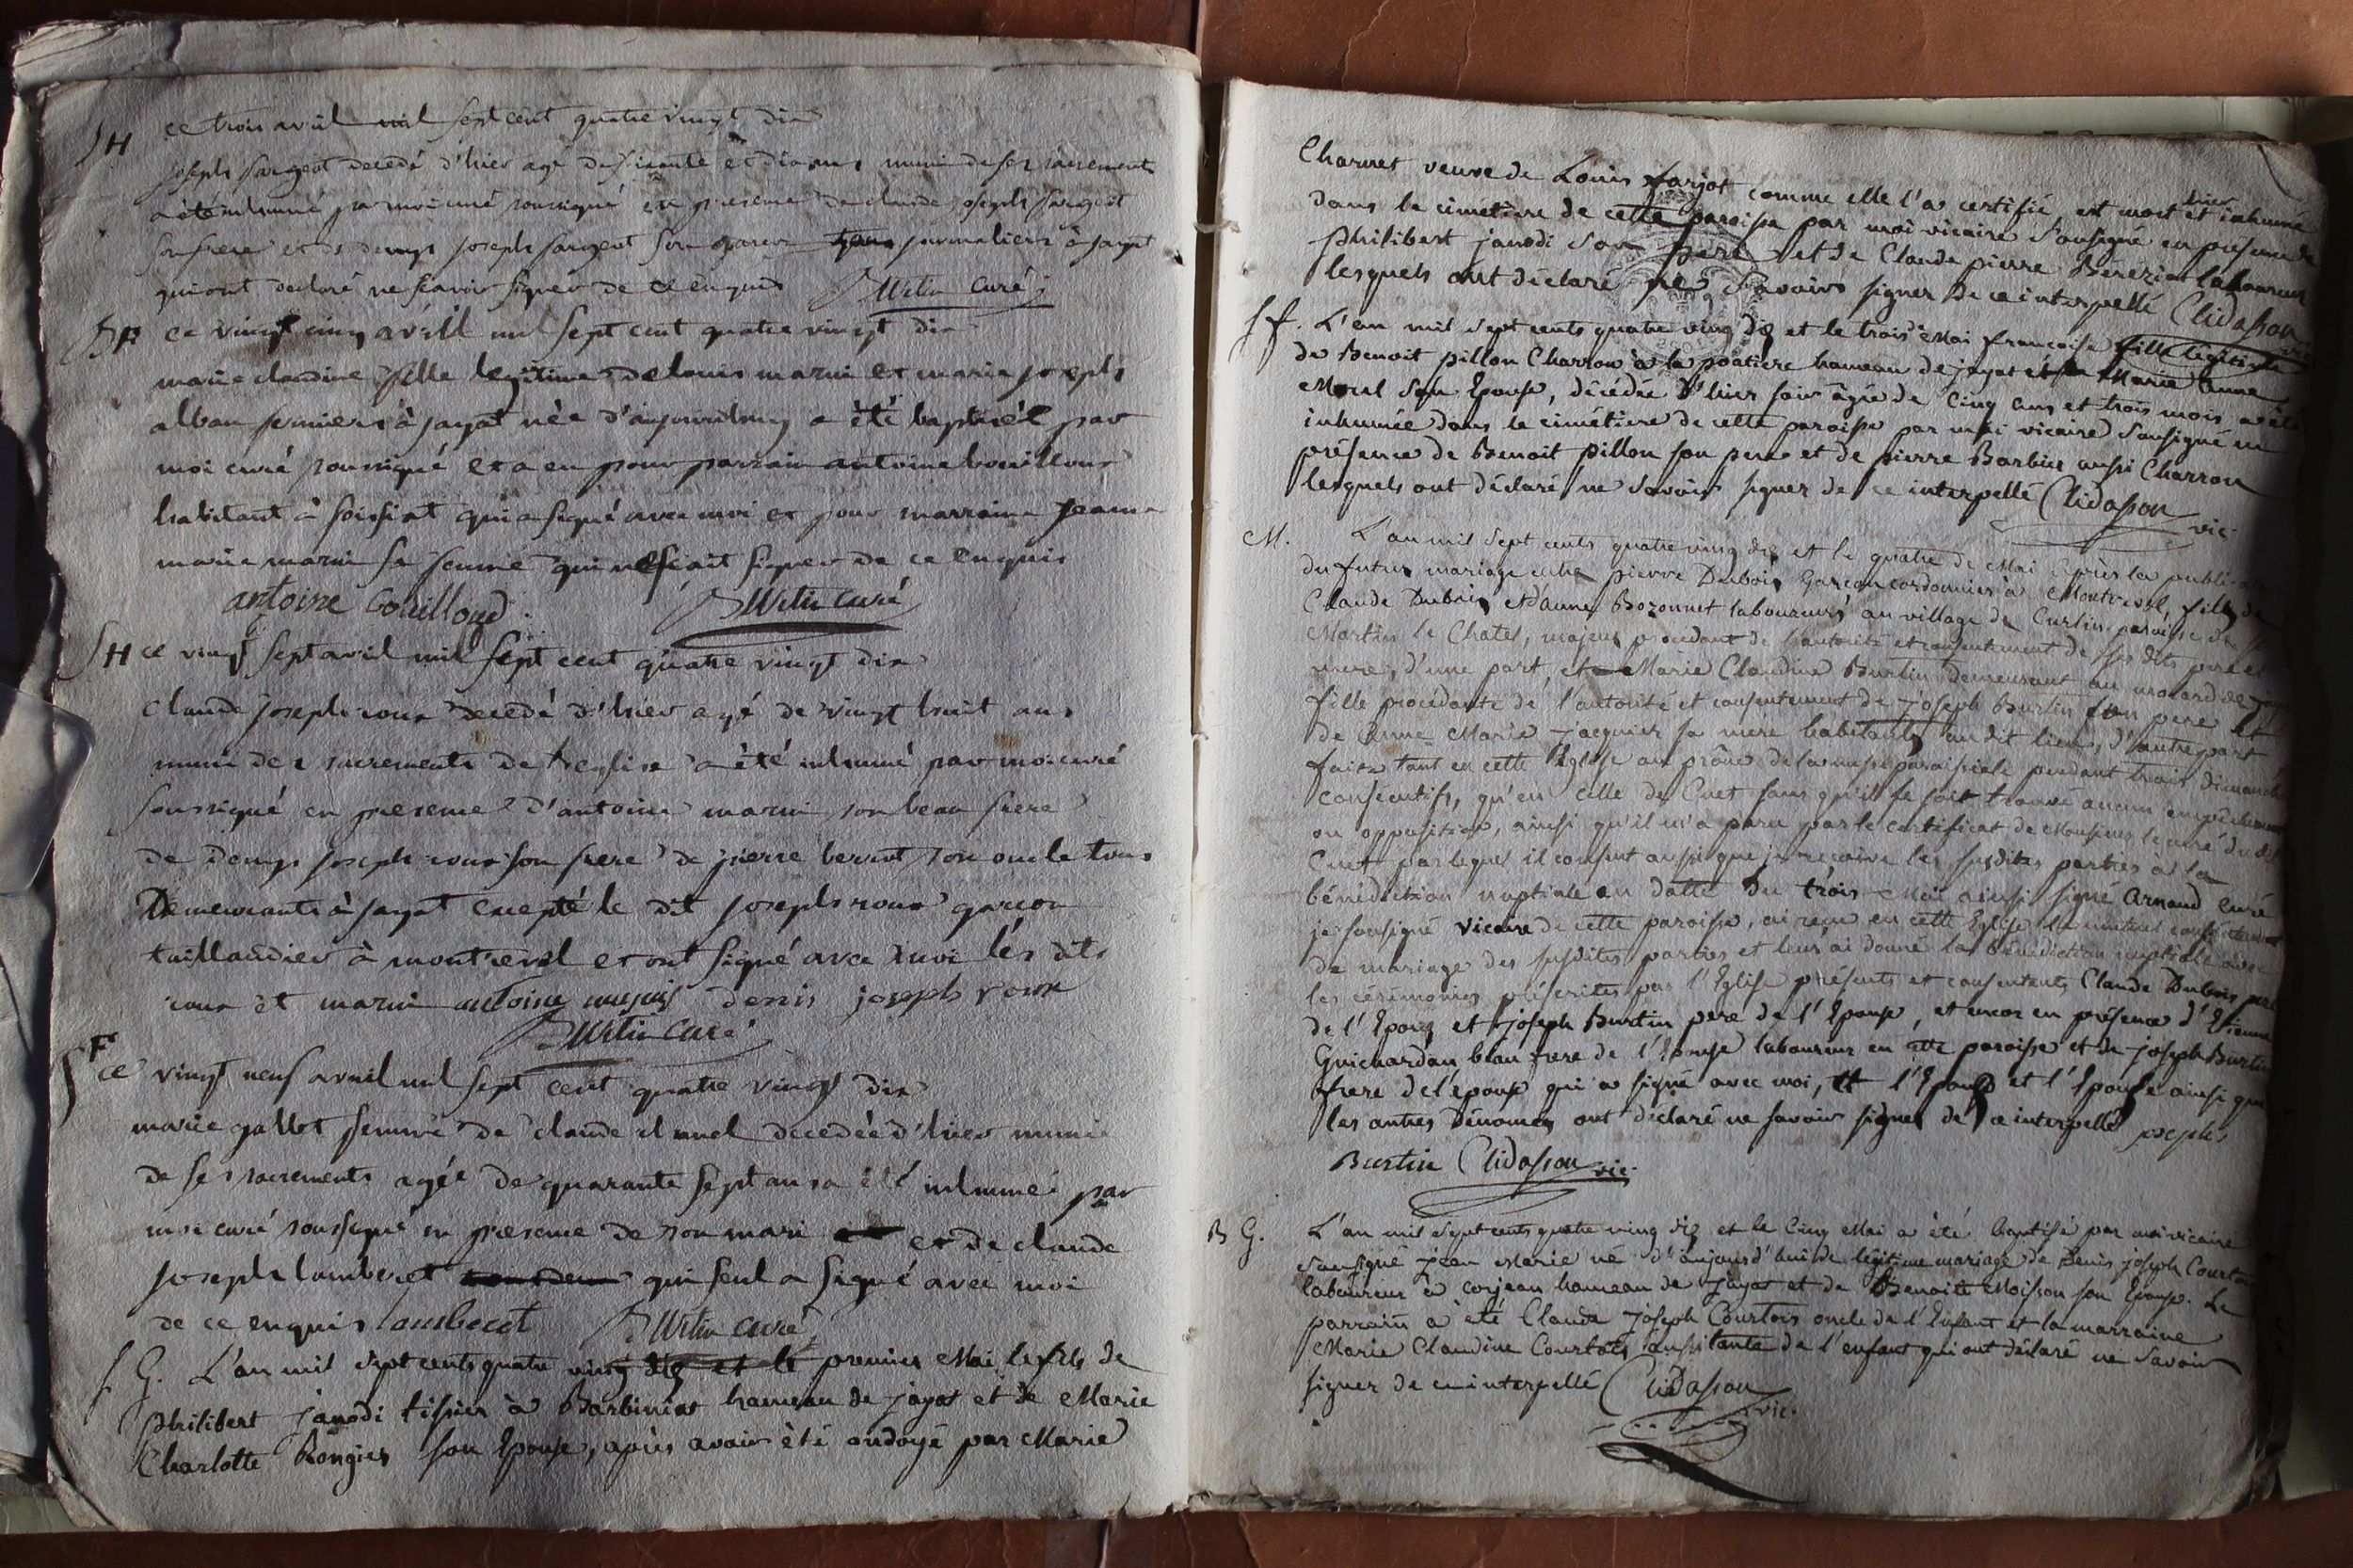 SH ce trois avril mil sept cent quatre vingt dix
joseph sargeot decedé d'hier agé de soixante et dix ans muni de ses sacrements
a été inhumé par moi curé soussigné en presence de claude joseph sargeot
son frere et de denys joseph sargeot son journaliers à jayat
qui ont declaré ne scavoir signer de ce enquis Burtin curé
BF ce vingt cinq avril mil sept cent quatre vingt dix
marie claudine fille legitime de louis marin et marie joseph
alban fermiers à jayat née d'aujourdhuy a été baptisée par
moi curé soussigné et a eu pour parrain antoine bouilloux
habitant à foissiat qui a signé avec moi et pour marraine jeanne
marie marin sa femme qui ne scait signer de ce enquis
antoine bouilloud Burtin curé
SH ce vingt sept avril mil sept cent quatre vingt dix
claude joseph roux decedé d'hier agé de vingt huit ans
muni des sacrements de l'eglise a été inhumé par moi curé
soussigné en presence d'antoine marin son beau frere
de denys joseph roux son frere de pierre son oncle tous
Demeurants à jayat excepté le dit joseph roux garcon
taillandier à montrevel et ont signé avec moi les dits
roux et marin antoine denis joseph roux
Burtin curé
SF ce vingt neuf avril mil sept cent quatre vingt dix
marie gallet femme de claude decedée d'hier munie
de ses sacrements agée de quarante sept ans a été inhumée par
moi curé soussigné en presence de son mari et de claude
joseph lamberet qui seul a signé avec moi
de ce enquis lamberet Burtin curé
S G. L'an mil sept cents quatre ving diz et le premier Mai le fils de
philibert janodi tissier à Barbinias hameau de jayat et de Marie
Charlotte Rongier son Epouse, après avoir été ondoyé par Marie
Charnet veuve de Louis farjot comme elle l'a certifié, est mort hier et inhumé
dans le cimetiere de cette paroisse par moi vicaire Sousigné en présence de
philibert janodi son pere et de Claude pierre Bereziat laboureur
lesquels ont déclaré ne savoir signer de ce interpellé Clidasson vic
S f. L'an mil sept cents quatre ving diz et le trois Mai francoise fille légitime
de Benoit pillon Charron à la poatiere hameau de jayat et de Marie Anne
Morel son Epouse, décédée d'hier soir âgée de Cinq ans et trois mois a été
inhumée dans le cimétiere de cette paroisse par moi vicaire Sousigné en
présence de Benoit pillon son pere et de pierre Barbier aussi Charron
lesquels ont déclaré ne savoir signer de ce interpellé Clidasson vic.
M. L'an mil sept cents quatre ving diz et le quatre de Mai Après la
du futur mariage entre pierre Dubois Garcon cordonnier à Montrevel, fils de
Claude Dubois et d'anne Bozonnet laboureurs au village de Curtin paroisse de St
Martin le Chatel, majeur procédant de l'autorité et consentement de ses dits pere et
mere, d'une part, et Marie Claudine Burtin demeurant au
fille procédante de l'autorité et consentement de joseph Burtin son pere et
de Anne Marie jacquier sa mere habitants au dit lieu, d'autre part
faite tant en cette Eglise au prône de la messe paroissiale pendant trois dimanches
consécutifs, qu'en celle de Cuet sans qu'il se soit trouvé aucun empêchement
ou opposition, ainsi qu'il m'a paru par le certificat de Monsieur le curé du dit
Cuet par lequel il consent aussi que je recoive les susdites parties à la
bénédiction nuptiale en datte du trois Mai ainsi signé Arnaud curé
je sousigné vicaire de cette paroisse, ai reçu en cette Eglise le mutuel consentement
de mariage des susdites parties et leur ai donné la bénédiction nuptiale avec
les cérémonies préscrites par l'Eglise présents et consentents Claude Dubois pere
de l'Epoux et joseph Burtin pere de l'Epouse, et encor en présence d'Etienne
Guichardan beau frere de l'Epouse laboureur en cette paroisse et de joseph Burtin
frere de l'épouse qui a signé avec moi, et l'Epoux et l'Epouse ainsi que
les autres Dénomés ont déclaré ne savoir signer de ce interpellé joseph
Burtin Clidasson vic.
B G. L'an mil sept cents quatre ving diz et le Cinq Mai a été baptisé par moi vicaire
sousigné jean Marie né d'aujourd'hui de légitime mariage de Denis joseph Courtois
laboureur à corjean hameau de jayat et de Benoite Moisson son Epouse. Le
parrain a été Claude joseph Courtois oncle de l'Enfant et la marraine
Marie Claudine Courtois aussi tante de l'enfant qui ont déclaré ne savoir
signer de ce interpellé Clidasson
vic.